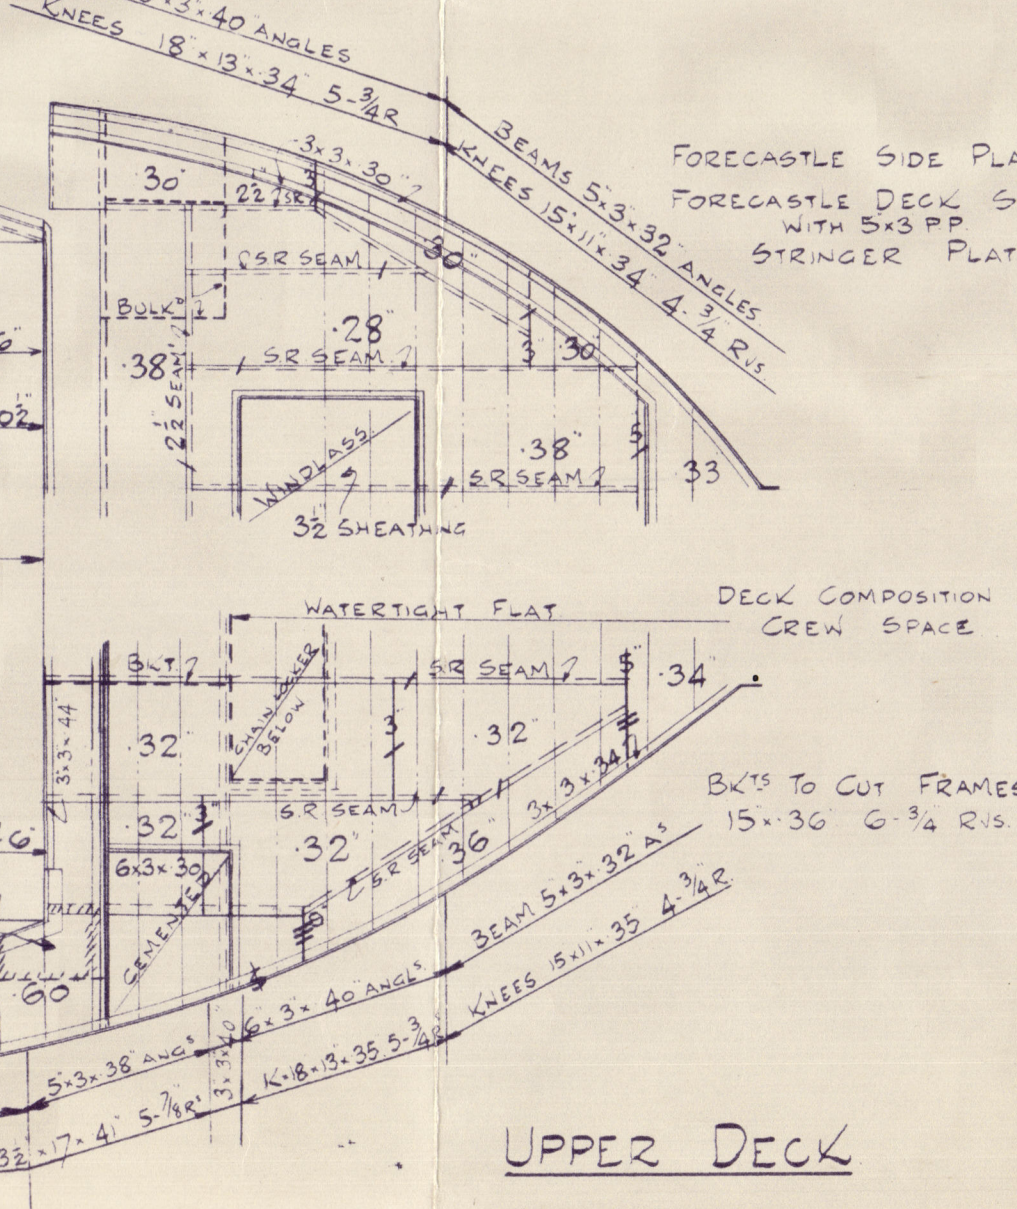 3"×·40" ANGLES
KNEES 18"×13"×·34" 5-3/4 R
BEAMS 5"×3"×·32" ANGLES
KNEES 15"×11"×·34" 4-3/4 RVS
FORECASTLE SIDE PLA
FORECASTLE DECK S
WITH 5"×3" P.P.
STRINGER PLAT
·3×3×·30"
·30"
2½" SR
3
·30"
SR SEAM
BULKD
·28"
S.R SEAM
·38"
2½" SEAM
3"
·30"
0½"
WINDLASS
·38"
5"
S.R SEAM
·33
3½" SHEATHING
WATERTIGHT FLAT
DECK COMPOSITION
CREW SPACE
BKT
S.R SEAM
5"
·34"
3"×3"×·44"
·32"
CHAIN LOCKER
BELOW
3"
·32"
3×3×·34"
BKTS TO CUT FRAMES
15"×·36" 6-3/4 RVS.
S.R SEAM
·32"
3"
·32"
S.R SEAM
·36"
6"
6×3×·30
CEMENTED
·60"
BEAM 5"×3"×·32" AS
KNEES 15"×11"×·35 4-3/4 R
6"×3"×·40" ANGLS
5"×3"×·38" ANGS
3×3×·40"
K-18"×13"×·35 5-3/4 R
3½"×17"×·41" 5-7/8 RS
UPPER DECK